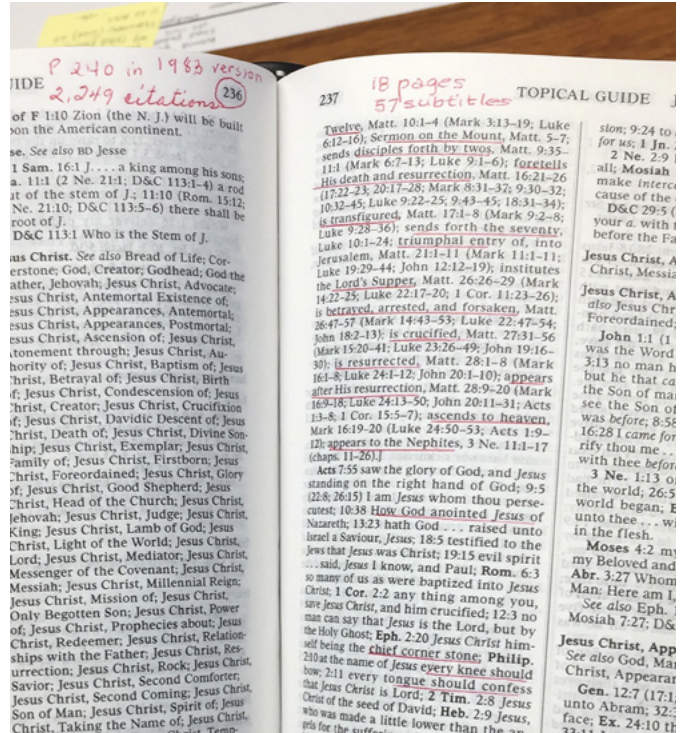 P 240 in 1983 version
2,249 citations
236
IDE
of F 1:10 Zion (the N. J.) will be built
on the American continent.
se. See also BD Jesse
1 Sam. 16:1 J. . . . a king among his sons;
a. 11:1 (2 Ne. 21:1; D&C 113:1–4) a rod
t of the stem of J.; 11:10 (Rom. 15:12;
Ne. 21:10; D&C 113:5–6) there shall be
root of J.
D&C 113:1 Who is the Stem of J.
us Christ. See also Bread of Life; Cor-
erstone; God, Creator; Godhead; God the
ather, Jehovah; Jesus Christ, Advocate;
esus Christ, Antemortal Existence of;
esus Christ, Appearances, Antemortal;
esus Christ, Appearances, Postmortal;
esus Christ, Ascension of; Jesus Christ,
tonement through; Jesus Christ, Au-
hority of; Jesus Christ, Baptism of; Jesus
hrist, Betrayal of; Jesus Christ, Birth
f; Jesus Christ, Condescension of; Jesus
hrist, Creator; Jesus Christ, Crucifixion
of; Jesus Christ, Davidic Descent of; Jesus
Christ, Death of; Jesus Christ, Divine Son-
hip; Jesus Christ, Exemplar; Jesus Christ,
Family of; Jesus Christ, Firstborn; Jesus
Christ, Foreordained; Jesus Christ, Glory
of; Jesus Christ, Good Shepherd; Jesus
Christ, Head of the Church; Jesus Christ,
Jehovah; Jesus Christ, Judge; Jesus Christ,
King; Jesus Christ, Lamb of God; Jesus
Christ, Light of the World; Jesus Christ,
Lord; Jesus Christ, Mediator; Jesus Christ,
Messenger of the Covenant; Jesus Christ,
Messiah; Jesus Christ, Millennial Reign;
Jesus Christ, Mission of; Jesus Christ,
Only Begotten Son; Jesus Christ, Power
of; Jesus Christ, Prophecies about; Jesus
Christ, Redeemer; Jesus Christ, Relation-
ships with the Father; Jesus Christ, Res-
urrection; Jesus Christ, Rock; Jesus Christ,
Savior; Jesus Christ, Second Comforter;
Jesus Christ, Second Coming; Jesus Christ,
Son of Man; Jesus Christ, Spirit of; Jesus
Christ, Taking the Name of; Jesus Christ,
18 pages
57 subtitles
237
TOPICAL GUIDE
Twelve, Matt. 10:1–4 (Mark 3:13–19; Luke
6:12–16); Sermon on the Mount, Matt. 5–7;
sends disciples forth by twos, Matt. 9:35–
11:1 (Mark 6:7–13; Luke 9:1–6); foretells
His death and resurrection, Matt. 16:21–26
(17:22–23; 20:17–28; Mark 8:31–37; 9:30–32;
10:32–45; Luke 9:22–25; 9:43–45; 18:31–34);
is transfigured, Matt. 17:1–8 (Mark 9:2–8;
Luke 9:28–36); sends forth the seventy,
Luke 10:1–24; triumphal entry of, into
Jerusalem, Matt. 21:1–11 (Mark 11:1–11;
Luke 19:29–44; John 12:12–19); institutes
the Lord's Supper, Matt. 26:26–29 (Mark
14:22–25; Luke 22:17–20; 1 Cor. 11:23–26);
is betrayed, arrested, and forsaken, Matt.
26:47–57 (Mark 14:43–53; Luke 22:47–54;
John 18:2–13); is crucified, Matt. 27:31–56
(Mark 15:20–41; Luke 23:26–49; John 19:16–
30); is resurrected, Matt. 28:1–8 (Mark
16:1–8; Luke 24:1–12; John 20:1–10); appears
after His resurrection, Matt. 28:9–20 (Mark
16:9–18; Luke 24:13–50; John 20:11–31; Acts
1:3–8; 1 Cor. 15:5–7); ascends to heaven,
Mark 16:19–20 (Luke 24:50–53; Acts 1:9–
12); appears to the Nephites, 3 Ne. 11:1–17
(chaps. 11–26).]
Acts 7:55 saw the glory of God, and Jesus
standing on the right hand of God; 9:5
(22:8; 26:15) I am Jesus whom thou perse-
cutest; 10:38 How God anointed Jesus of
Nazareth; 13:23 hath God . . . raised unto
Israel a Saviour, Jesus; 18:5 testified to the
Jews that Jesus was Christ; 19:15 evil spirit
. . . said, Jesus I know, and Paul; Rom. 6:3
so many of us as were baptized into Jesus
Christ; 1 Cor. 2:2 any thing among you,
save Jesus Christ, and him crucified; 12:3 no
man can say that Jesus is the Lord, but by
the Holy Ghost; Eph. 2:20 Jesus Christ him-
self being the chief corner stone; Philip.
2:10 at the name of Jesus every knee should
bow; 2:11 every tongue should confess
that Jesus Christ is Lord; 2 Tim. 2:8 Jesus
Christ of the seed of David; Heb. 2:9 Jesus,
who was made a little lower than the an-
gels for the
sion; 9:24 to
for us; 1 Jn.
2 Ne. 2:9
all; Mosiah
make interc
cause of the
D&C 29:5 (
your a. with t
before the Fa
Jesus Christ, A
Christ, Messia
Jesus Christ, A
also Jesus Chr
Foreordained;
John 1:1 (1
was the Word
3:13 no man h
but he that ca
the Son of man
see the Son of
was before; 8:58
16:28 I came for
rify thou me . .
with thee before
3 Ne. 1:13 o
the world; 26:5
world began; E
unto thee . . . wi
in the flesh.
Moses 4:2 my
my Beloved and
Abr. 3:27 Whom
Man: Here am I,
See also Eph. 1
Mosiah 7:27; D&
Jesus Christ, App
See also God, Man
Christ, Appearan
Gen. 12:7 (17:1;
unto Abram; 32:3
face; Ex. 24:10 th